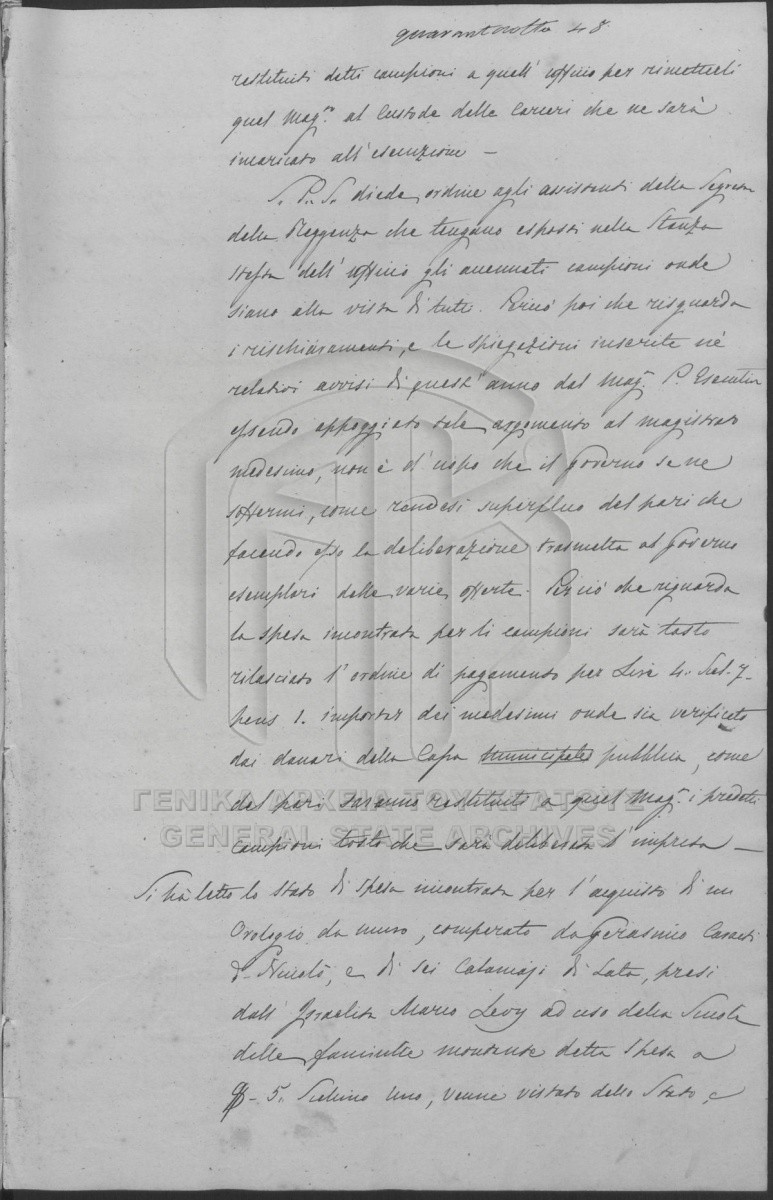 quarantotto 48
restituiti detti campioni a quell' uffizio per rimetterli
quel Mag.to al Custode delle Carceri che ne sarà
incaricato all'esecuzione —
S. P. S. diede ordine agli assistenti della Segret.a
della Reggenza che tengano esposti nella Stanza
stessa dell' uffizio gli accennati campioni onde
siano alla vista di tutti. Perciò poi che risguarda
i rischiaramenti, e le spiegazioni inserite ne'
relativi avvisi di quest' anno dal Mag.o P. Esecutivo
essendo appoggiato tale argomento al magistrato
medesimo, non è d' uopo che il Governo se ne
soffermi, come rendesi superfluo del pari che
facendo esso la deliberazione trasmetta al Governo
esemplari delle varie offerte. Perciò che riguarda
la spesa incontrata per li campioni sarà tosto
rilasciato l' ordine di pagamento per Lire 4. Sol. 7
pens 1. importar dei medesimi onde sia verificato
dai danari della Cassa municipale pubblica, come
del pari saranno restituiti a quel Mag.o i predetti
campioni tosto che sarà deliberata l' impresa —
Si hà letto lo stato di spesa incontrata per l' acquisto di un
Orologio da muro, comperato da Gerasimo
e di sei Calamaj di Lata, presi
dall' Israelita Marco Levy ad uso della Scuola
delle fanciulle montante detta spesa a
5. Scelino Uno, venne vistato dello Stato, e
ΓΕΝΙΚΑ ΑΡΧΕΙΑ ΤΟΥ ΚΡΑΤΟΥΣ
GENERAL STATE ARCHIVES